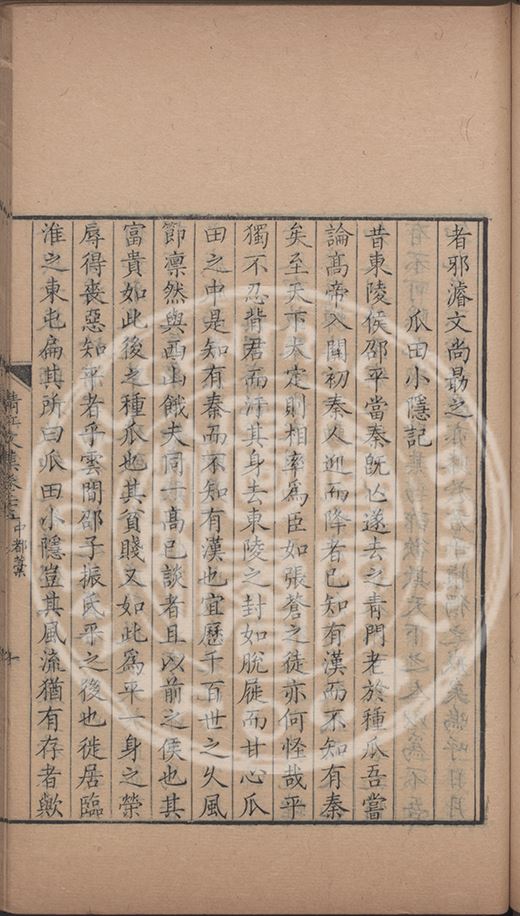 者邪濬文尚勗之
瓜田小隱記
昔東陵侯邵平當秦旣亾遂去之青門老於種瓜吾嘗
論髙帝入關初秦人迎而降者已知有漢而不知有秦
矣至天下大定則相率爲臣如張蒼之徒亦何怪哉平
獨不忍背君而汙其身去東陵之封如脫屣而甘心瓜
田之中是知有秦而不知有漢也宜歷千百世之久風
節凛然與西山餓夫同一髙已談者且以前之侯也其
富貴如此後之種瓜也其貧賤又如此爲平一身之榮
辱得喪惡知平者乎雲間邵子振氏平之後也徙居臨
淮之東屯扁其所曰瓜田小隱豈其風流猶有存者歟
清江文集卷
中都藁